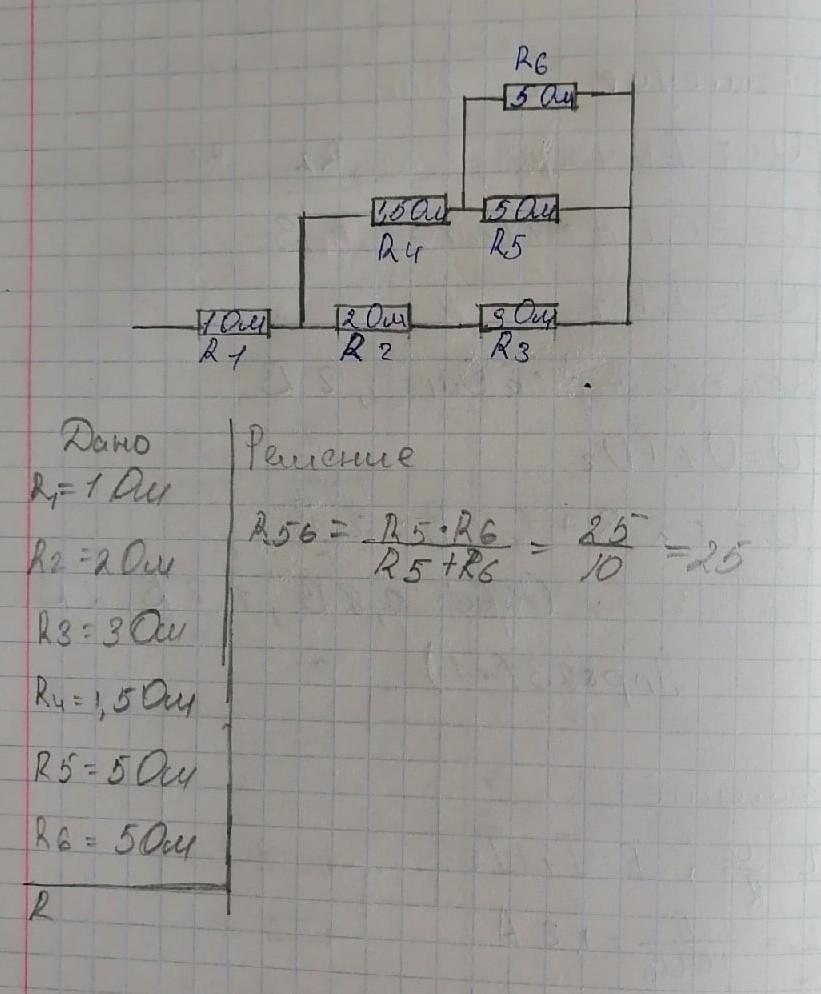 R6
5 Ом
1,5 Ом 5 Ом
R4 R5
1 Ом 2 Ом 3 Ом
R1 R2 R3
Дано Решение
R1 = 1 Ом
R56 = R5·R6 / R5+R6 = 25 / 10 = 25
R2 = 2 Ом
R3 = 3 Ом
R4 = 1,5 Ом
R5 = 5 Ом
R6 = 5 Ом
R